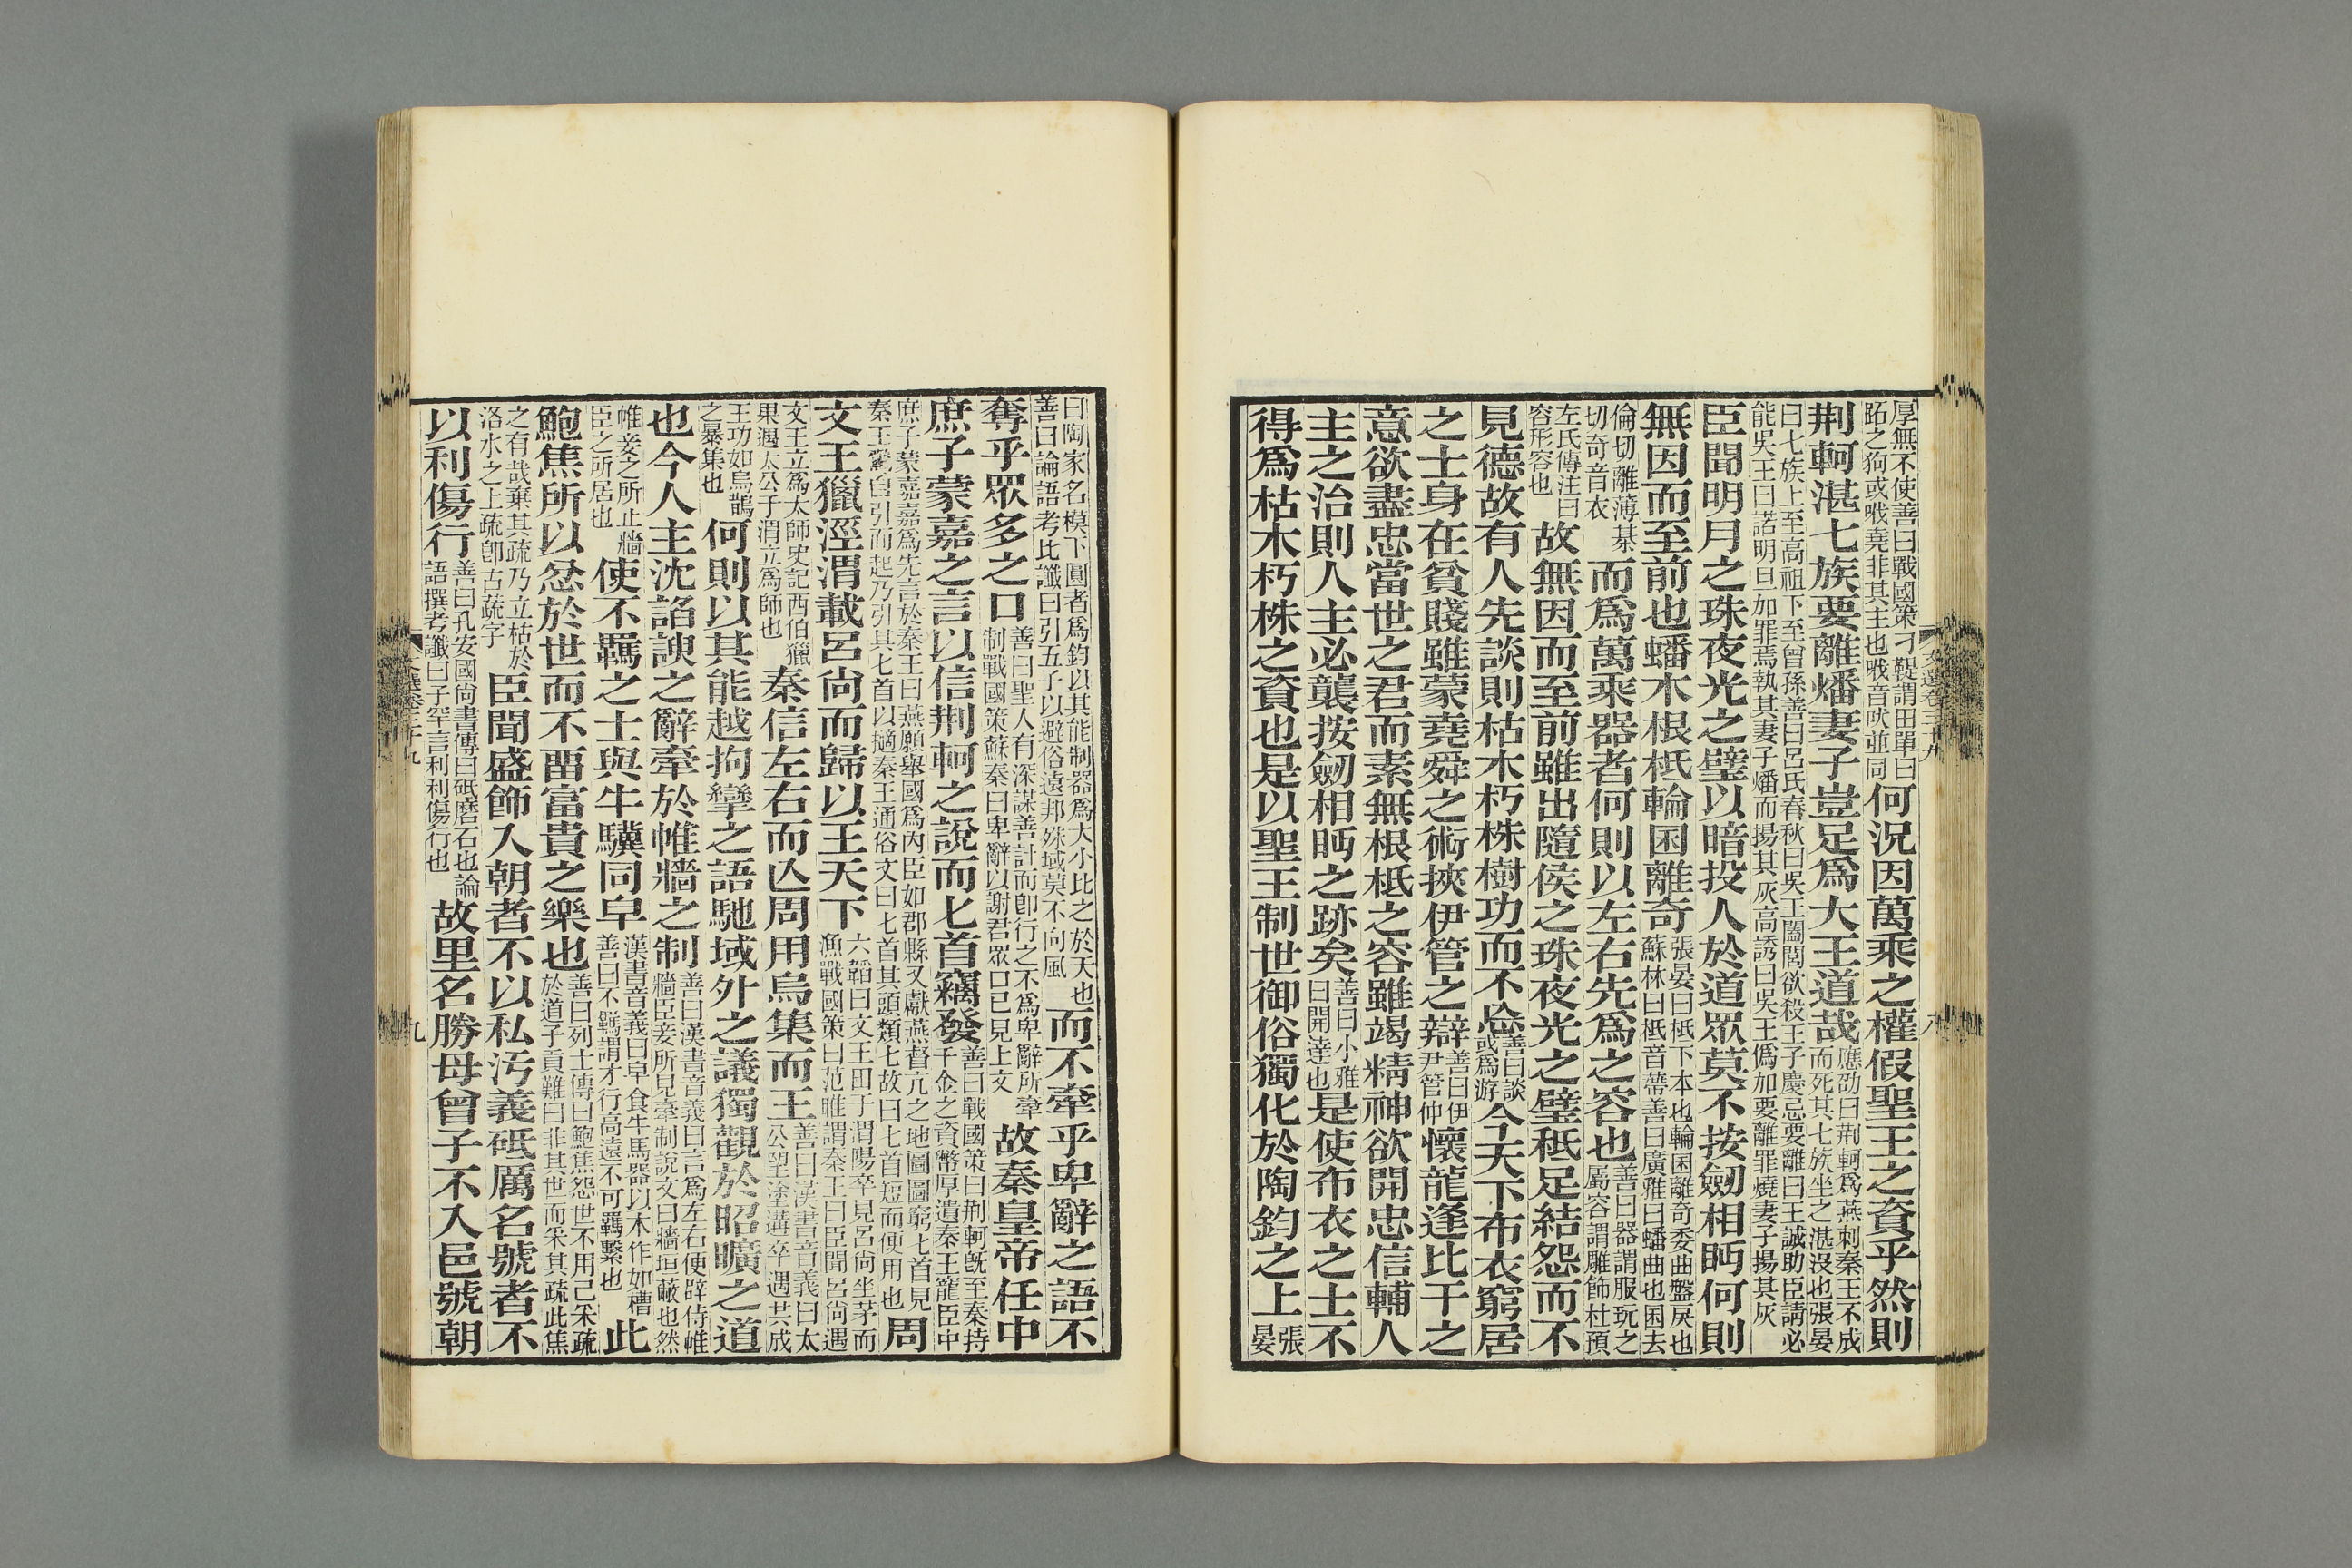 厚無不使善曰戰國策刁鞮謂田單曰
跖之狗或吠堯非其主也吠音吠並同
何況因萬乘之權假聖王之資乎然則
荆軻湛七族要離燔妻子豈足爲大王道哉
應劭曰荆軻爲燕刺秦王不成
而死其七族坐之湛沒也張晏
曰七族上至高祖下至曾孫善曰呂氏春秋曰吳王闔閭欲殺王子慶忌要離曰王誠助臣請必
能吳王曰諾明旦加罪焉執其妻子燔而揚其灰高誘曰吳王僞加要離罪燒妻子揚其灰
臣聞明月之珠夜光之璧以暗投人於道眾莫不按劒相眄何則
無因而至前也蟠木根柢輪囷離奇
張晏曰柢下本也輪囷離奇委曲盤戾也
蘇林曰柢音蔕善曰廣雅曰蟠曲也囷去
倫切離薄棊
切奇音衣
而爲萬乘器者何則以左右先爲之容也
善曰器謂服玩之
屬容謂雕飾杜預
左氏傳注曰
容形容也
故無因而至前雖出隨侯之珠夜光之璧秪足結怨而不
見德故有人先談則枯木朽株樹功而不忘
善曰談
或爲游
今天下布衣窮居
之士身在貧賤雖蒙堯舜之術挾伊管之辯
善曰伊
尹管仲
懷龍逢比干之
意欲盡忠當世之君而素無根柢之容雖竭精神欲開忠信輔人
主之治則人主必襲按劒相眄之跡矣
善曰小雅
曰開達也
是使布衣之士不
得爲枯木朽株之資也是以聖王制世御俗獨化於陶鈞之上
張
晏
曰陶家名模下圓者爲鈞以其能制器爲大小比之於天也
善曰論語考比讖曰引五子以避俗遠邦殊域莫不向風
而不牽乎卑辭之語不
奪乎眾多之口
善曰聖人有深謀善計而卽行之不爲卑辭所牽
制戰國策蘇秦曰卑辭以謝君眾口已見上文
故秦皇帝任中
庶子蒙嘉之言以信荆軻之說而匕首竊發
善曰戰國策曰荆軻旣至秦持
千金之資幣厚遺秦王寵臣中
庶子蒙嘉嘉爲先言於秦王曰燕願舉國爲內臣如郡縣又獻燕督亢之地圖圖窮匕首見
秦王驚自引而起乃引其匕首以擿秦王通俗文曰匕首其頭類匕故曰匕首短而便用也
周
文王獵涇渭載呂尚而歸以王天下
六韜曰文王田于渭陽卒見呂尚坐茅而
漁戰國策曰范睢謂秦王曰臣聞呂尚遇
文王立爲太師史記西伯獵
果遇太公于渭立爲師也
秦信左右而亾周用烏集而王
善曰漢書音義曰太
公望塗遘卒遇共成
王功如烏鵲
之暴集也
何則以其能越拘攣之語馳域外之議獨觀於昭曠之道
也今人主沈諂諛之辭牽於帷牆之制
善曰漢書音義曰言爲左右便辟侍帷
牆臣妾所見牽制說文曰牆垣蔽也然
帷妾之所止牆
臣之所居也
使不羈之士與牛驥同皁
漢書音義曰皁食牛馬器以木作如槽
善曰不羈謂才行高遠不可羈繫也
此
鮑焦所以忿於世而不畱富貴之樂也
善曰列士傳曰鮑焦怨世不用己采疏
於道子貢難曰非其世而采其疏此焦
之有哉棄其疏乃立枯於
洛水之上疏卽古蔬字
臣聞盛飾入朝者不以私汚義砥厲名號者不
以利傷行
善曰孔安國尙書傳曰砥磨石也論
語撰考讖曰子罕言利利傷行也
故里名勝母曾子不入邑號朝
九